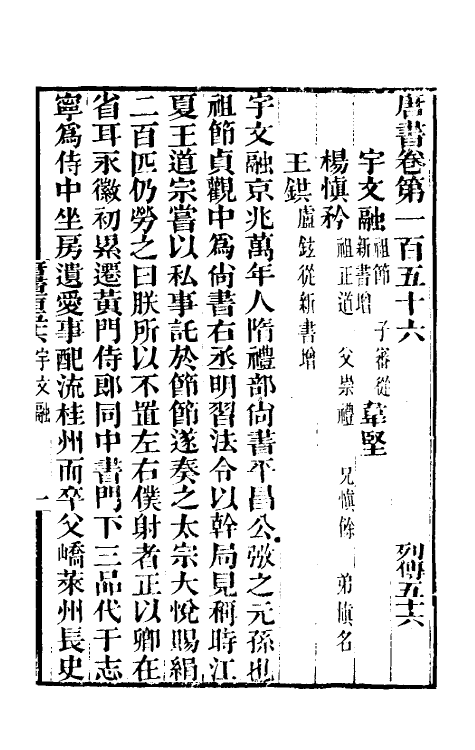 唐書卷第一百五十六 列傳五十六
宇文融祖節 子審從新書增 韋堅
楊愼矜祖正道 父崇禮 兄愼餘 弟愼名
王鉷盧鉉從新書增
宇文融京兆萬年人隋禮部尙書平昌公㢸之元孫也
祖節貞觀中爲尙書右丞明習法令以幹局見稱時江
夏王道宗嘗以私事託於節節遂奏之太宗大悅賜絹
二百匹仍勞之曰朕所以不置左右僕射者正以卿在
省耳永徽初累遷黃門侍郎同中書門下三品代于志
寧爲侍中坐房遺愛事配流桂州而卒父嶠萊州長史
宇文融 一